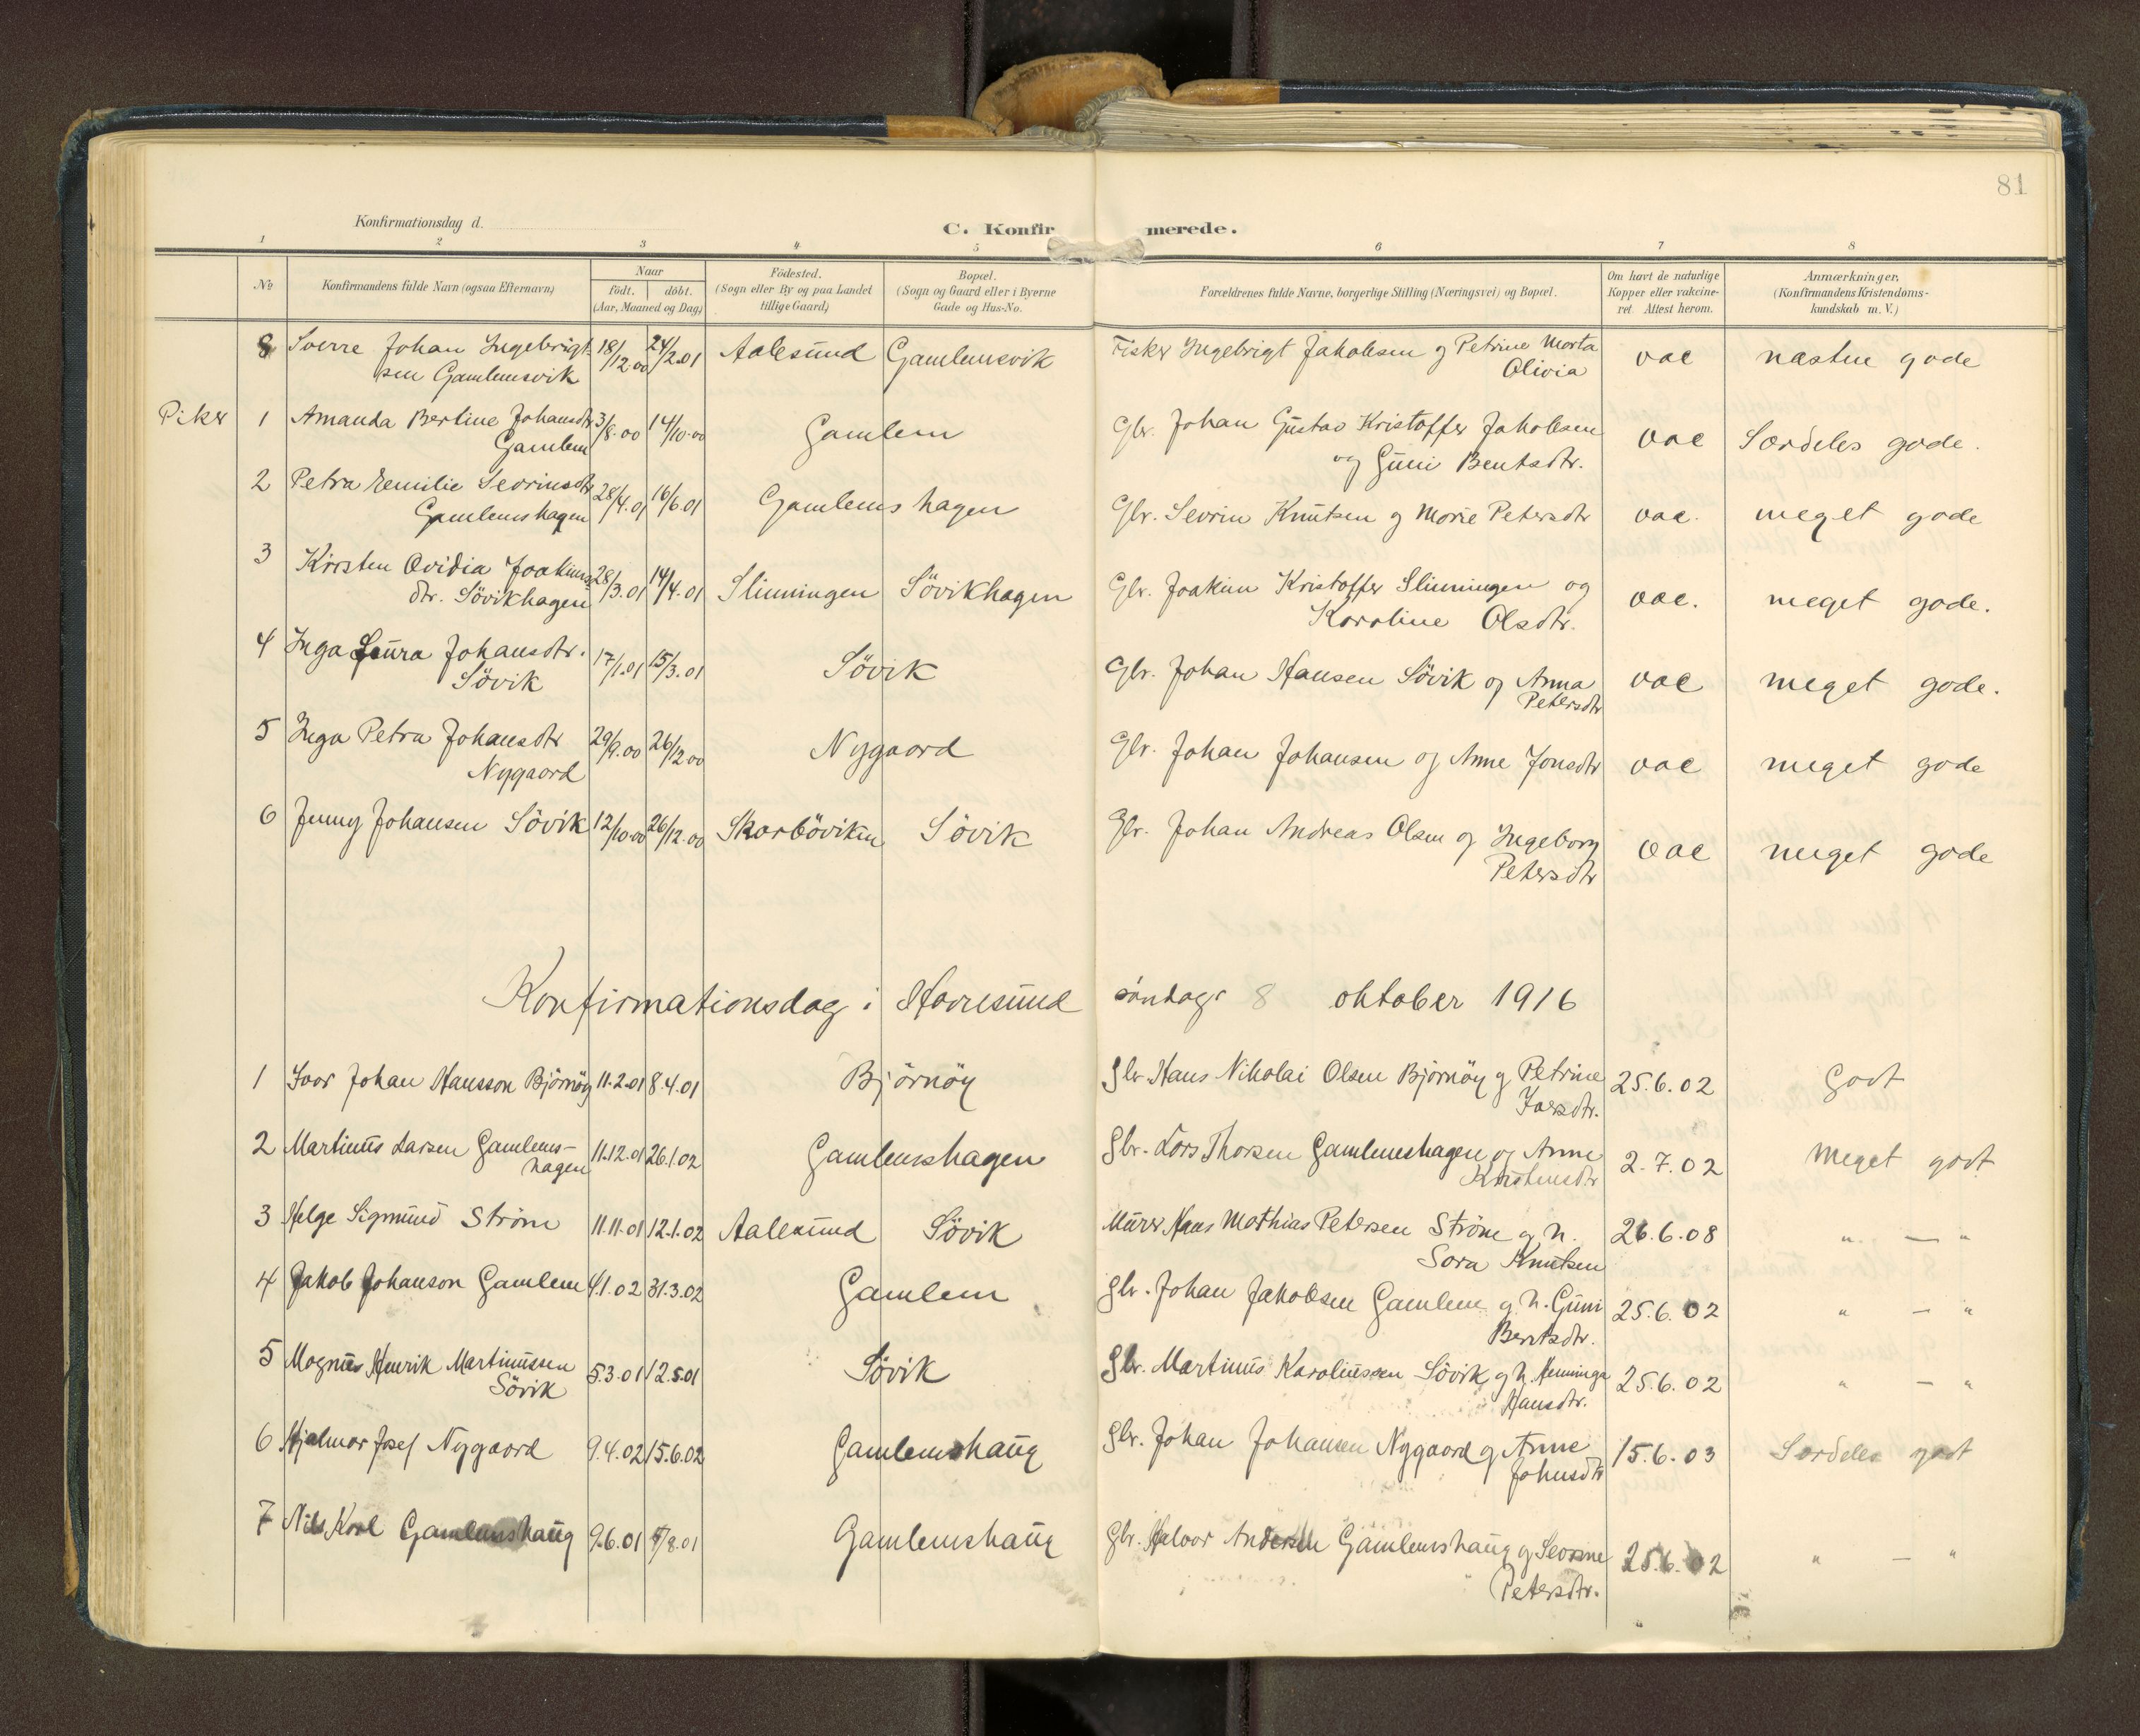 81
Konfirmationsdag d.
C. Konfirmerede.
1 2 3 4 5 6 7 8
No
Konfirmandens fulde Navn (ogsaa Efternavn)
Naar
født. døbt.
(Aar, Maaned og Dag)
Fødested.
(Sogn eller By og paa Landet
tillige Gaard)
Bopæl.
(Sogn og Gaard eller i Byerne
Gade og Hus-No.
Forældrenes fulde Navne, borgerlige Stilling (Næringsvei) og Bopæl.
Om havt de naturlige
Kopper eller vakcine-
ret. Attest herom.
Anmærkninger,
(Konfirmandens Kristendoms-
kundskab m. V.)
8 Sverre Johan Ingebrigt- 18/12 00 24/2.01 Aalesund Gamlemsvik Fisker Ingebrigt Jakobsen og Petrine Marta vac næsten gode
sen Gamlemsvik Olivia
Piker 1 Amanda Bertine Johansdtr 3/8.00 14/10.00 Gamlem Gbr. Johan Gustav Kristoffer Jakobsen vac Særdeles gode.
Gamlem og Guni Bentsdtr.
2 Petra Emilie Sevrinsdtr 28/4.01 16/6.01 Gamlemshagen Gbr. Sevrin Knutsen og Marie Petersdtr vac. meget gode
Gamlemshagen
3 Kirsten Ovidia Joakims- 28/3.01 14/4.01 Slinningen Søvikhagen Gbr. Joakim Kristoffer Slinningen og vac. meget gode.
dtr. Søvikhagen Karoline Olsdtr.
4 Inga Laura Johansdtr. 17/1.01 15/3.01 Søvik Gbr. Johan Hansen Søvik og Anna vac meget gode.
Søvik Petersdtr
5 Inga Petra Johansdtr 29/9.00 26/12 00 Nygaard Gbr. Johan Johansen og Anne Jonsdtr vac meget gode
Nygaard
6 Jenny Johansen Søvik 12/10.00 26/12.00 Skarbøviken Søvik Gbr. Johan Andreas Olsen og Ingeborg vac meget gode
Petersdtr
Konfirmationsdag i Havnesund søndag 8 oktober 1916
1 Ivar Johan Hansson Bjørnøy 11.2.01 8.4.01 Bjørnøy gbr Hans Nikolai Olsen Bjørnøy og Petrine 25.6.02 Godt
Iversdtr.
2 Martinus Larsen Gamlems- 11.12.01 26.1.02 Gamlemshagen gbr. Lars Thorsen Gamlemshagen og Anne 2.7.02 Meget godt
hagen Kristensdtr
3 Helge Sigmund Strøm 11.11.01 12.1.02 Aalesund Søvik Murer Hans Mathias Petersen Strøm og h. 26.6.08 " — "
Sara Knutsen
4 Jakob Johanson Gamlem 4.1.02 31.3.02 Gamlem gbr. Johan Jakobsen Gamlem og h. Guni 25.6.02 " — "
Bentsdtr.
5 Magnus Henrik Martinussen 5.3.01 12.5.01 Søvik gbr. Martinus Karoliussen Søvik og h. Henninga 25.6.02 " — "
Søvik Hansdtr.
6 Hjalmar Josef Nygaard 9.4.02 15.6.02 Gamlemshaug gbr. Johan Johansen Nygaard og Anne 15.6.03 Særdeles godt
Johnsdtr
7 Nils Karl Gamlemshaug 9.6.01 /8.01 Gamlemshaug gbr. Halvor Andersen Gamlemshaug og Sevrine 25.6.02 " — "
Petersdtr.